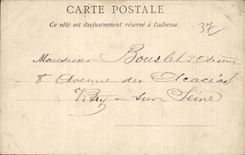 CARTE POSTALE
Ce côté est exclusivement réservé à l'adresse
37
Monsieur
8 Avenue des Acacias
Vitry-sur-Seine